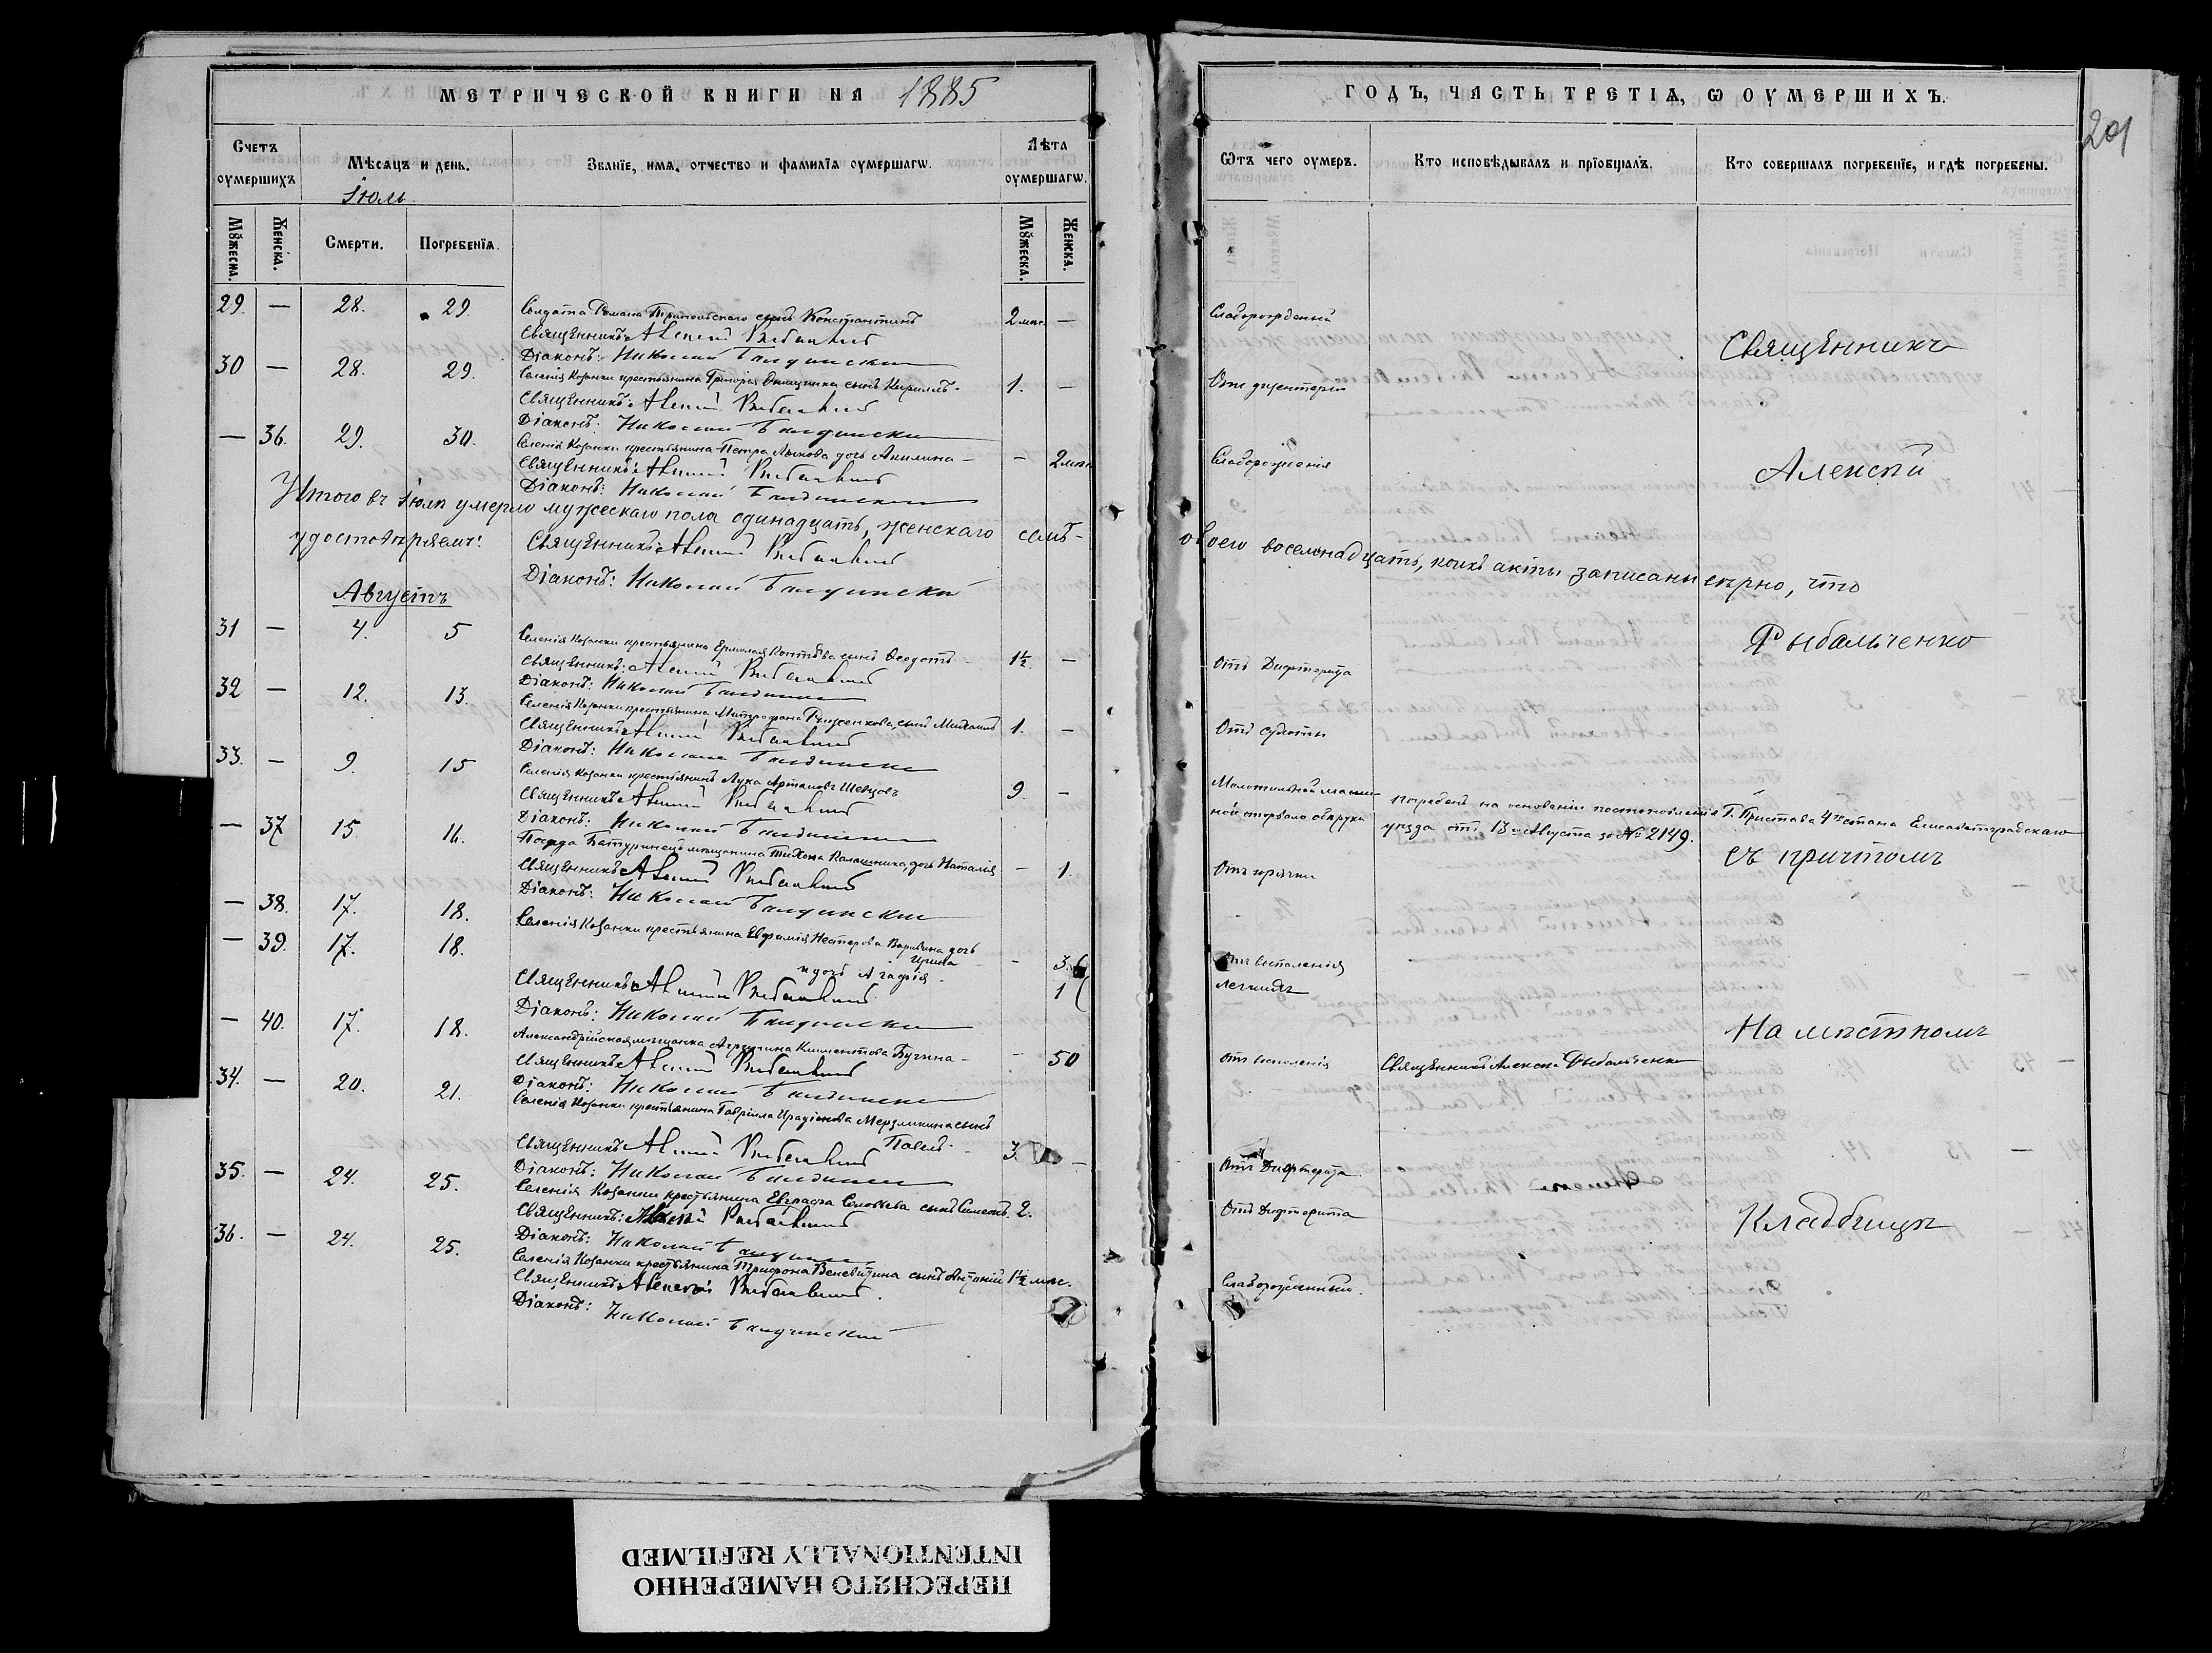 МЕТРИЧЕСКОЙ КНИГИ НА 1885
Счетъ оумершихъ
Мѣсяцъ и день.
Іюль
Званїе, имѧ, отчество и фамилїа оумершагѡ.
Лѣта оумершагѡ.
Мꙋжеска.
Женска.
Смерти.
Погребенїѧ.
Мꙋжеска.
Женска.
29. — 28. 29. Солдата Романа сынъ Константинъ 2 мѣс. —
Священникъ: Алексѣй Рыбальченко
Діаконъ: Николай
30 — 28. 29. Селенія Козанки крестьянина Григорія сынъ Кириллъ 1. —
Священникъ: Алексѣй Рыбальченко
Діаконъ: Николай
— 36. 29. 30. Селенія Козанки крестьянина Петра Лыкова дочь Акилина — 2 мѣс.
Священникъ: Алексѣй Рыбальченко
Діаконъ: Николай
Итого въ Іюлѣ умерло мужескаго пола одинадцать, женскаго семь —
удостовѣряемъ: Священникъ: Алексѣй Рыбальченко
Діаконъ: Николай
Августъ
31 — 4. 5 Селенія Козанки крестьянина Ермолая сынъ Ѳеодотъ 1½. —
Священникъ: Алексѣй Рыбальченко
Діаконъ: Николай
32 — 12. 13. Селенія Козанки крестьянина Митрофана сынъ Михаилъ 1. —
Священникъ: Алексѣй Рыбальченко
Діаконъ: Николай
33. — 9. 15 Селенія Козанки крестьянинъ Лука Артамовъ Шевцовъ 9. —
Священникъ: Алексѣй Рыбальченко
Діаконъ: Николай
— 37 15. 16. Посада мѣщанина Тихона Калашника, дочь Наталія — 1.
Священникъ: Алексѣй Рыбальченко
Діаконъ: Николай
— 38. 17. 18. Селенія Козанки крестьянина Евфимія Нестерова дочь
Ирина — 3.
— 39. 17. 18. и дочь Агафія — 1
Священникъ: Алексѣй Рыбальченко
Діаконъ: Николай
— 40. 17. 18. Александрійская мѣщанка Климентова Бугина — 50
Священникъ: Алексѣй Рыбальченко
Діаконъ: Николай
34. — 20. 21. Селенія Козанки крестьянина Гавріила Иродіонова Мерзликина сынъ
Павелъ — 3. —
Священникъ: Алексѣй Рыбальченко
Діаконъ: Николай
35. — 24. 25. Селенія Козанки крестьянина Евграфа Соловьева сынъ Симеонъ. 2.
Священникъ: Алексѣй Рыбальченко
Діаконъ: Николай
36. — 24. 25. Селенія Козанки крестьянина Трифона Веневитина сынъ Антоній 1½ мѣс.
Священникъ: Алексѣй Рыбальченко
Діаконъ: Николай
ГОДЪ, ЧАСТЬ ТРЕТІѦ, Ѡ ОУМЕРШИХЪ.
201
Ѿтъ чего оумеръ.
Кто исповѣдывалъ и прїобщалъ.
Кто совершалъ погребенїе, и гдѣ погребены.
Слаборожденый
Священникъ
Отъ дизентеріи
Слаборожденія
Алексѣй
обоего восемнадцать, коихъ акты записаны вѣрно, что
Рыбальченко
Отъ Дифтерита
Молотильной маши-
ной оторвало обѣ руки
погребенъ на основаніи постановленія Г. Пристава 4го стана Елисаветградскаго
уѣзда отъ 13го Августа за № 2149.
съ причтомъ
Отъ воспаленія
легкихъ
На мѣстномъ
отъ воспаленія Священникъ Алексѣй Рыбальченко
Отъ Дифтерита
Отъ Дифтерита
Кладбищѣ
Слаборожденный.
ПЕРЕСНЯТО НАМЕРЕННО
INTENTIONALLY REFILMED